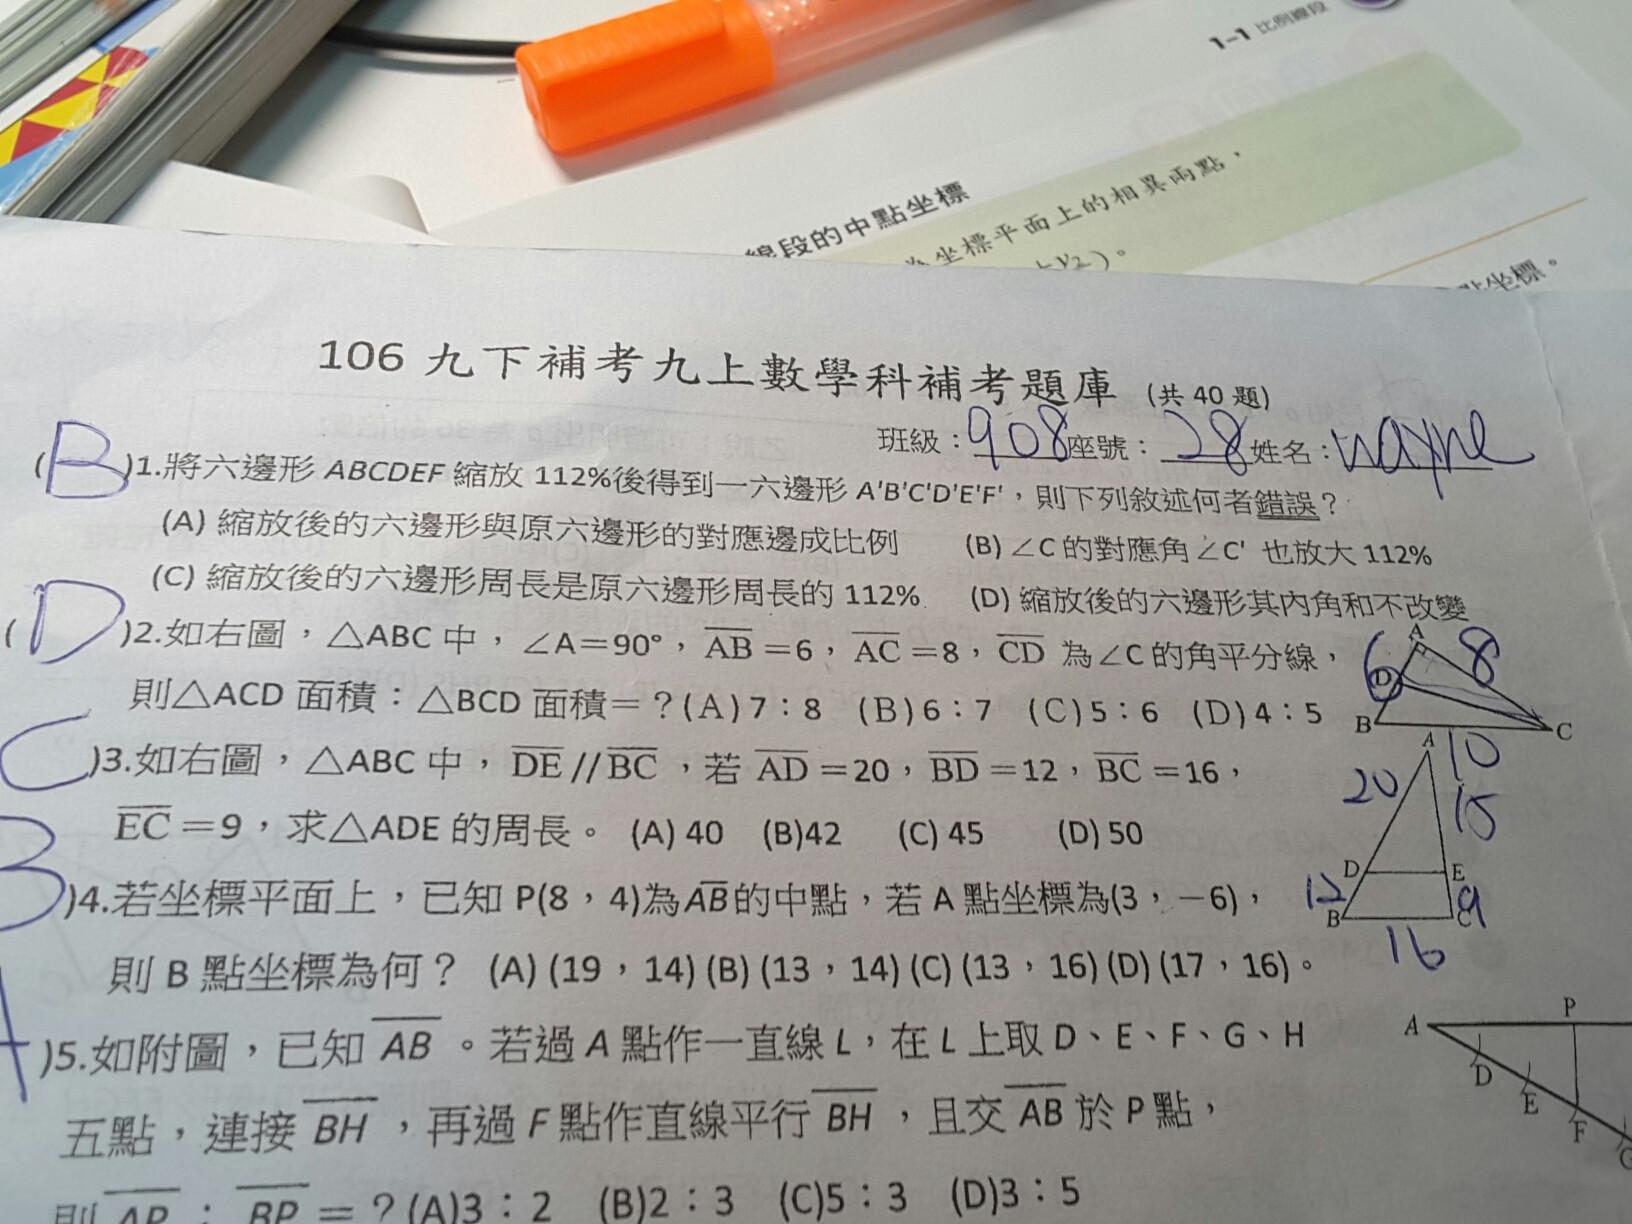 1-1 比例線段
線段的中點坐標
坐標平面上的相異兩點,
點坐標。
106 九下補考九上數學科補考題庫 (共 40 題)
班級:908座號:28姓名:wayne
(B)1.將六邊形 ABCDEF 縮放 112%後得到一六邊形 A'B'C'D'E'F',則下列敘述何者錯誤?
(A) 縮放後的六邊形與原六邊形的對應邊成比例 (B) ∠C 的對應角∠C' 也放大 112%
(C) 縮放後的六邊形周長是原六邊形周長的 112% (D) 縮放後的六邊形其內角和不改變
(D)2.如右圖,△ABC 中,∠A=90°,AB=6,AC=8,CD 為∠C 的角平分線,
則△ACD 面積:△BCD 面積=?(A)7:8 (B)6:7 (C)5:6 (D)4:5
A
6
8
D
B
C
10
C)3.如右圖,△ABC 中,DE//BC,若 AD=20,BD=12,BC=16,
EC=9,求△ADE 的周長。 (A) 40 (B)42 (C) 45 (D) 50
A
20
15
D
E
12
9
B
C
16
B)4.若坐標平面上,已知 P(8,4)為AB的中點,若 A 點坐標為(3,-6),
則 B 點坐標為何? (A) (19,14) (B) (13,14) (C) (13,16) (D) (17,16)。
A)5.如附圖,已知 AB。若過 A 點作一直線 L,在 L 上取 D、E、F、G、H
五點,連接 BH,再過 F 點作直線平行 BH,且交 AB 於 P 點,
則 AP:BP=?(A)3:2 (B)2:3 (C)5:3 (D)3:5
A
P
D
E
F
G